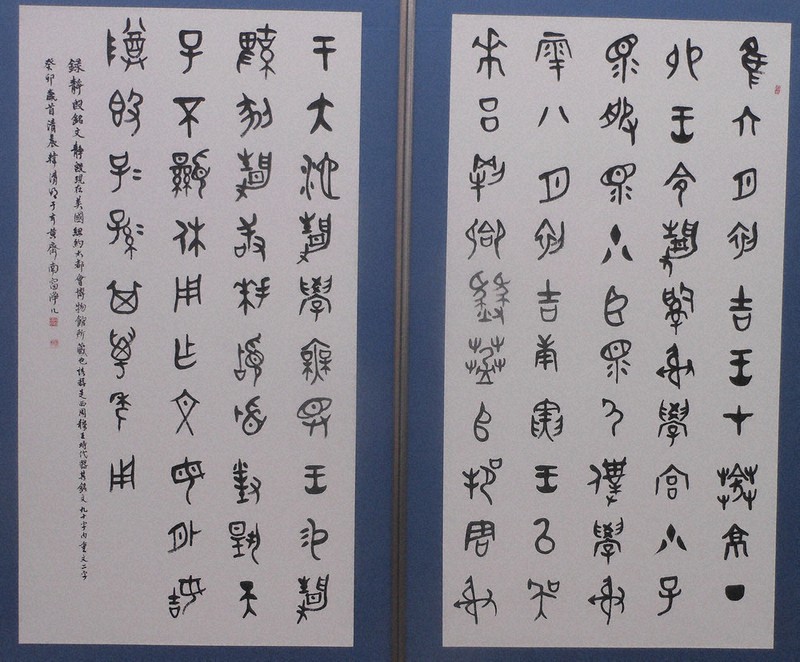 隹六月初吉王才𦱤京丁
卯王令靜𤔲射學宮小子
眔服眔小臣眔尸僕學射
雩八月初吉庚寅王以吳
𠦪吕犅卿𢿐𦱤𠂤邦君射
于大池靜學無斁王易靜
鞞剢靜敢拜稽首對揚天
子不顯休用乍文母外姞
尊𣪘子=孫=其萬年用
錄靜𣪘銘文靜𣪘現在美國紐約大都會博物館所藏也該器是西周穆王時代器其銘文九十字內重文二字
癸卯歲首清晨韓清明于黃齋南窗淨几